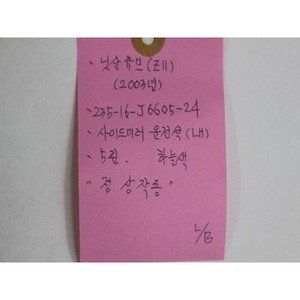 · 닛산큐브(Z11)
(2003년)
· 235-16-J6605-24
· 사이드미러 운전석 (내)
· 5핀. 하늘색
" 정상작동 "